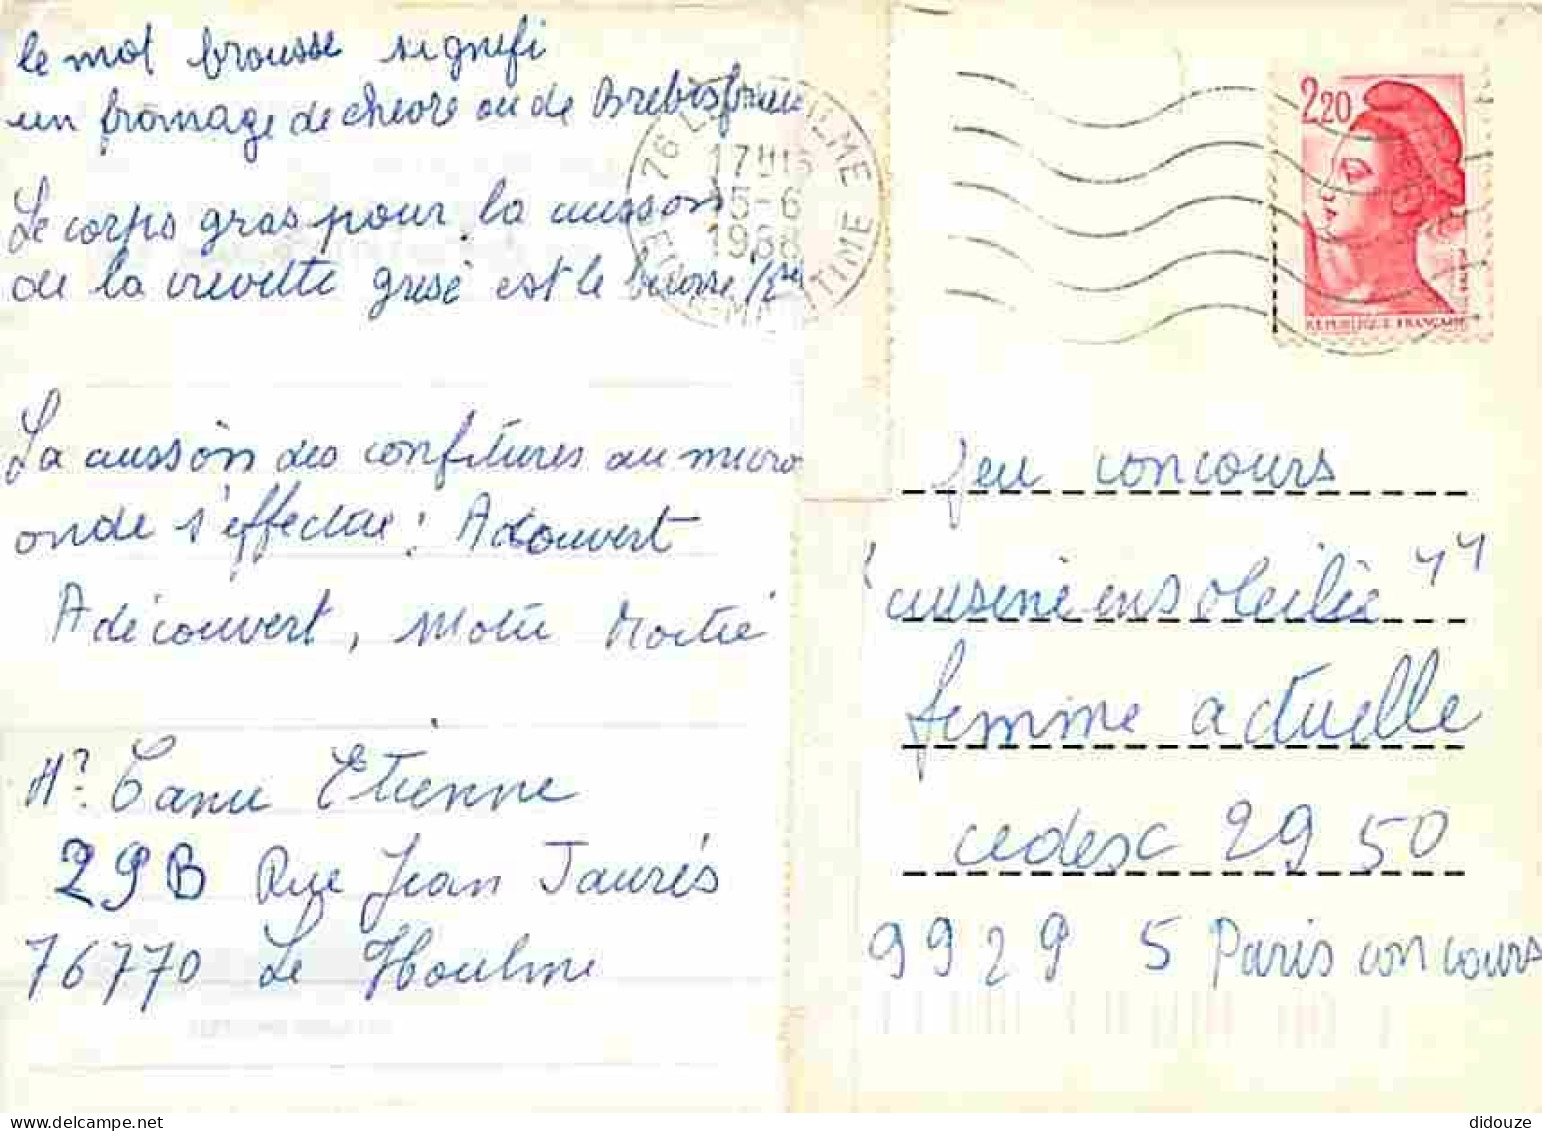 le mot brousse signifi
un fromage de chevre ou de Brebis frais
Le corps gras pour la cuisson
de la crevette grise est le beurre 1/2 sel
La cuisson des confitures au micro
onde s'effectue : Adouvert
A découvert, Motié Moitié
Mr Canu Etienne
29B Rue Jean Jaurés
76770 Le Houlme
76 LE HOULME
17H15
15-6
1988
SEINE-MARITIME
2,20
REPUBLIQUE FRANÇAISE
Jeu concours
"cuisine ensoleilée"
femme actuelle
cedesc 2950
99295 Paris concours
didouze